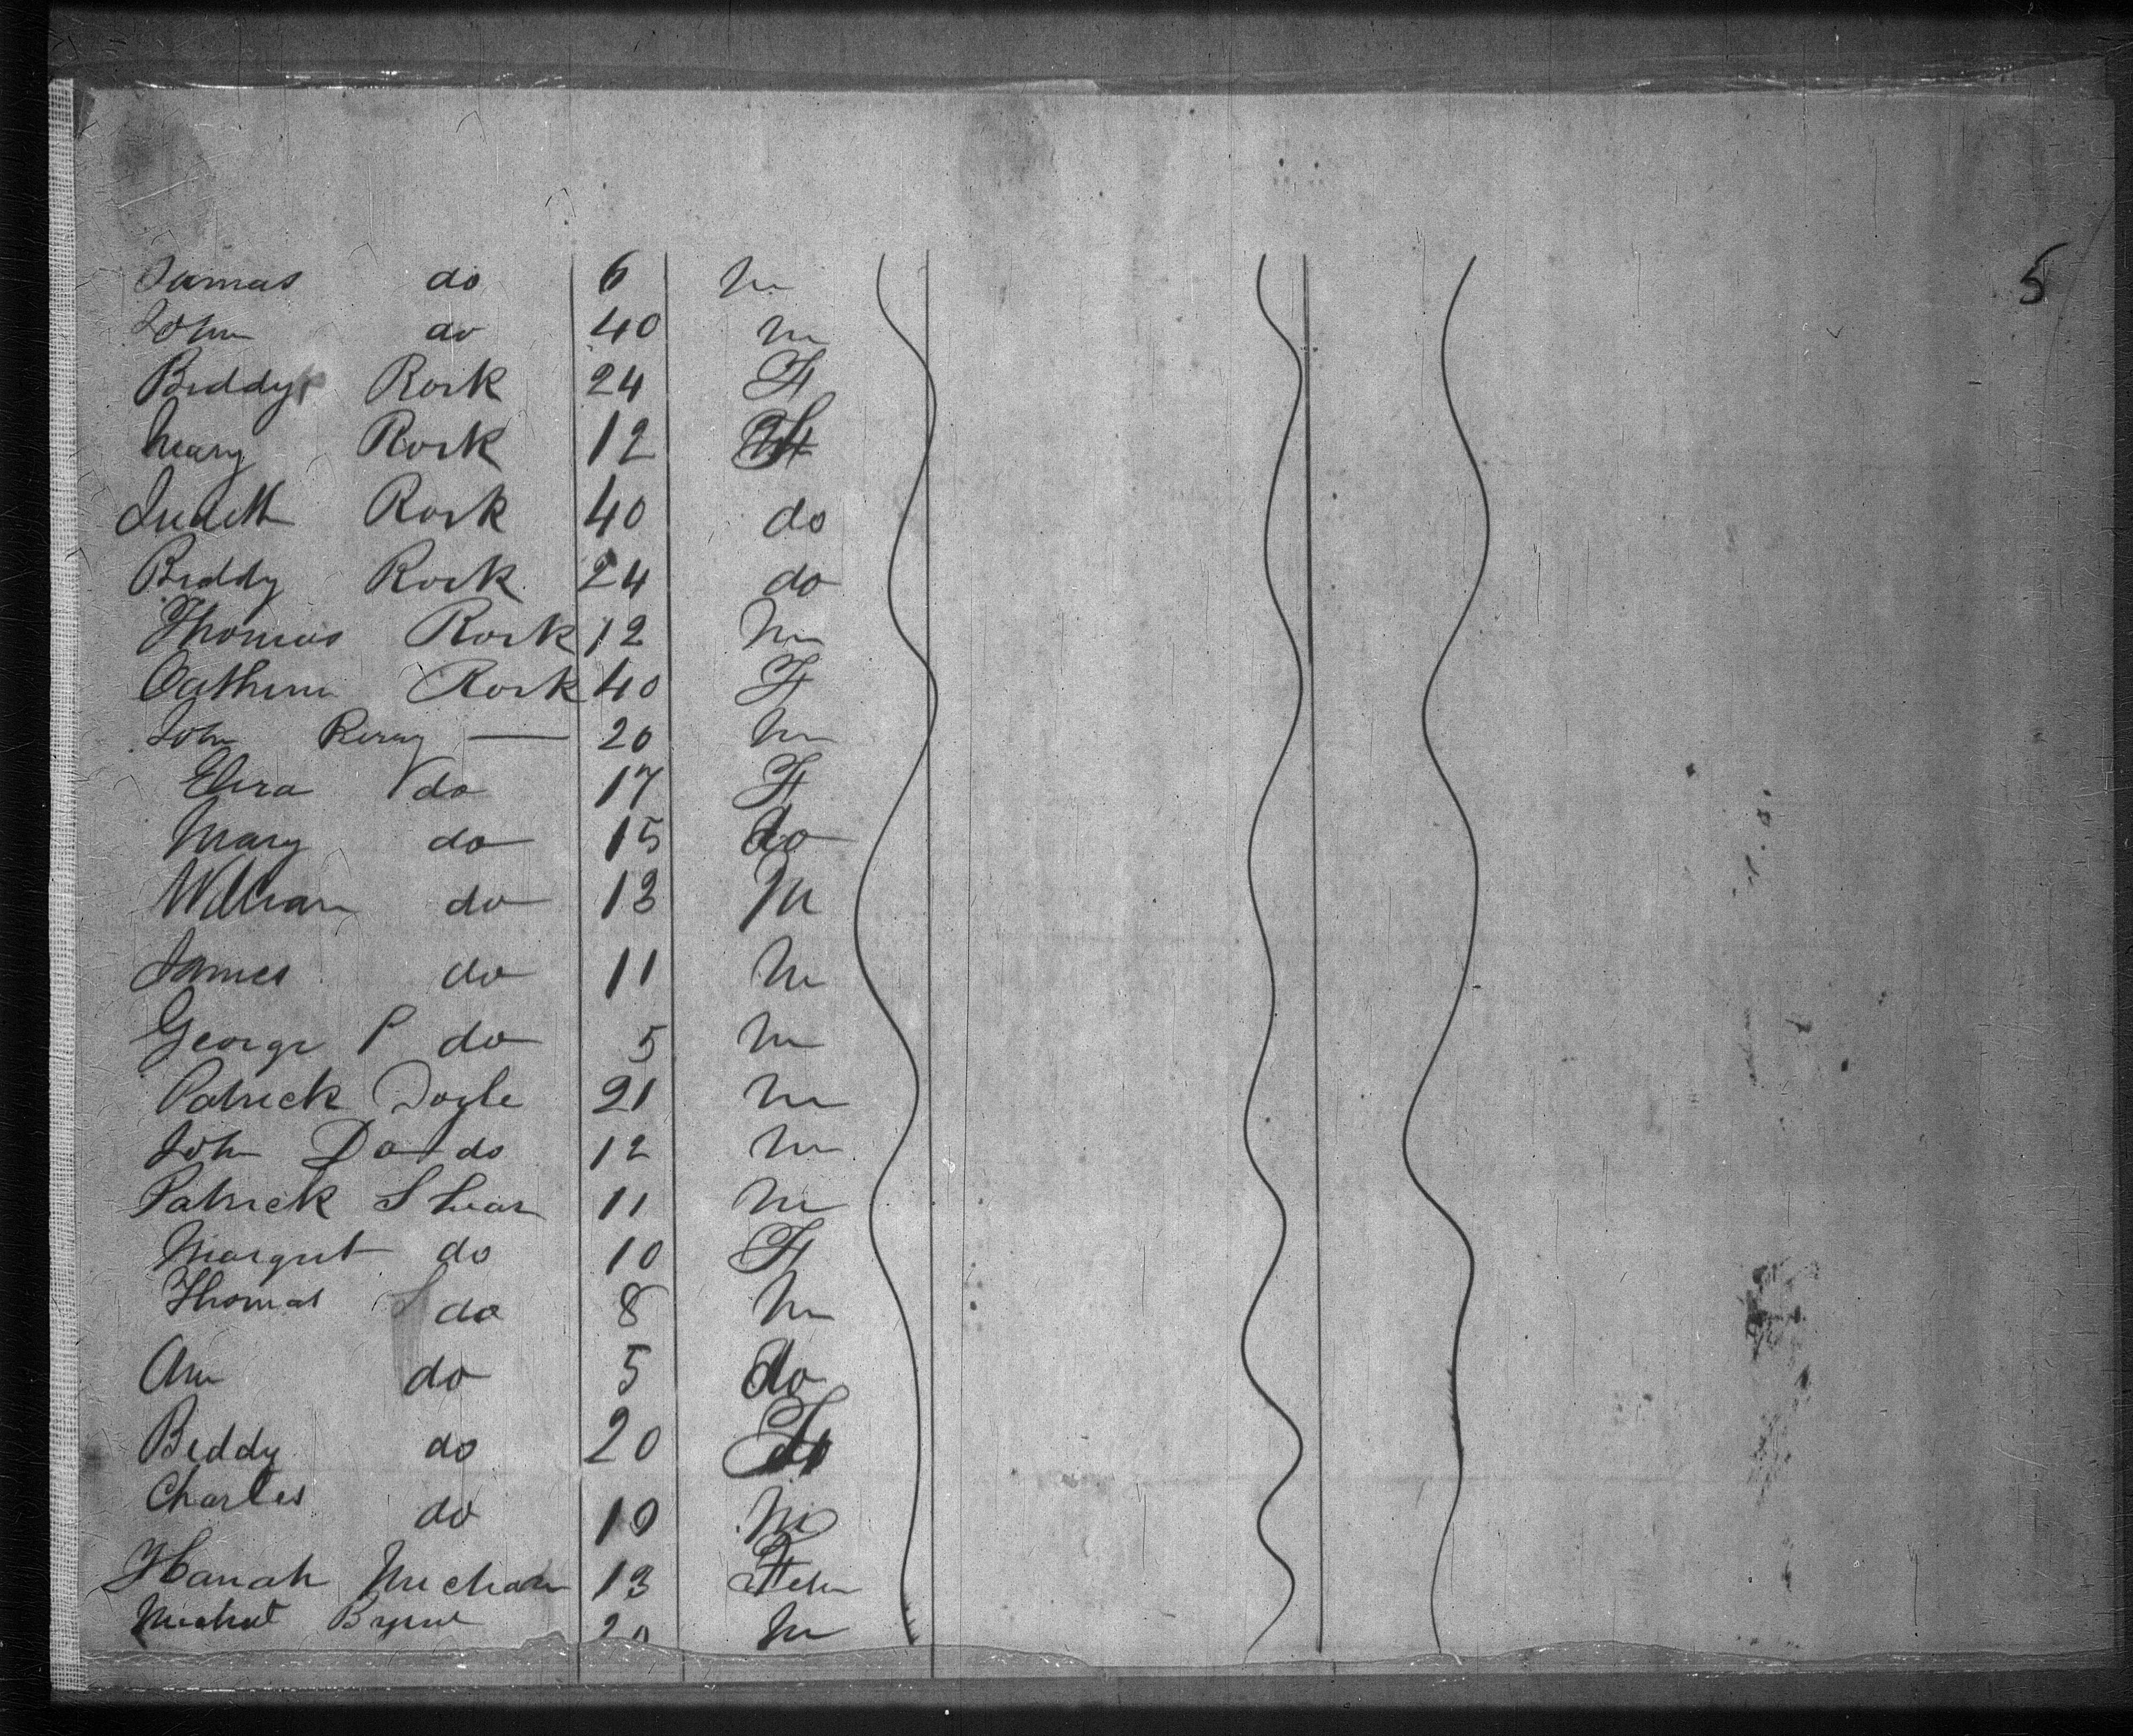 5
James do 6 M
John do 40 M
Biddy Rork 24 F
Mary Rork 12 F
Judeth Rork 40 do
Biddy Rork 24 do
Thomas Rork 12 M
Catherin Rork 40 F
John 20 M
Eliza do 17 F
Mary do 15 do
William do 13 M
James do 11 M
George P do 5 M
Patrick Doyle 21 M
John Do do 12 M
Patrick 11 M
Margret do 10 F
Thomas do 8 M
Ann do 5 do
Biddy do 20
Charles do 10 M
Hanah 13
Michael Byrne 20 M